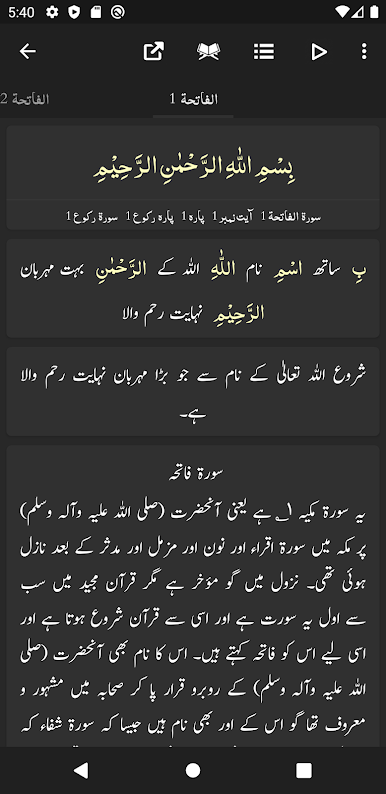 5:40
الفاتحة 1
الفاتحة 2
بِسْمِ اللّٰهِ الرَّحْمٰنِ الرَّحِيْمِ
سورة الفاتحة 1 آیت نمبر 1 پارہ 1 پارہ رکوع 1 سورة رکوع 1
بِ ساتھ اسْمِ نام اللّٰهِ اللہ کے الرَّحْمٰنِ بہت مہربان
الرَّحِيْمِ نہایت رحم والا
شروع اللہ تعالٰی کے نام سے جو بڑا مہربان نہایت رحم والا
ہے۔
سورۃ فاتحہ
یہ سورۃ مکیہ ؂۱ ہے یعنی آنحضرت (صلی اللہ علیہ وآلہ وسلم)
پر مکہ میں سورۃ اقراء اور نون اور مزمل اور مدثر کے بعد نازل
ہوئی تھی۔ نزول میں گو مؤخر ہے مگر قرآن مجید میں سب
سے اول یہ سورت ہے اور اسی سے قرآن شروع ہوتا ہے اور
اسی لیے اس کو فاتحہ کہتے ہیں۔ اس کا نام بھی آنحضرت (صلی
اللہ علیہ وآلہ وسلم) کے روبرو قرار پا کر صحابہ میں مشہور و
معروف تھا گو اس کے اور بھی نام ہیں جیسا کہ سورۃ شفاء کہ